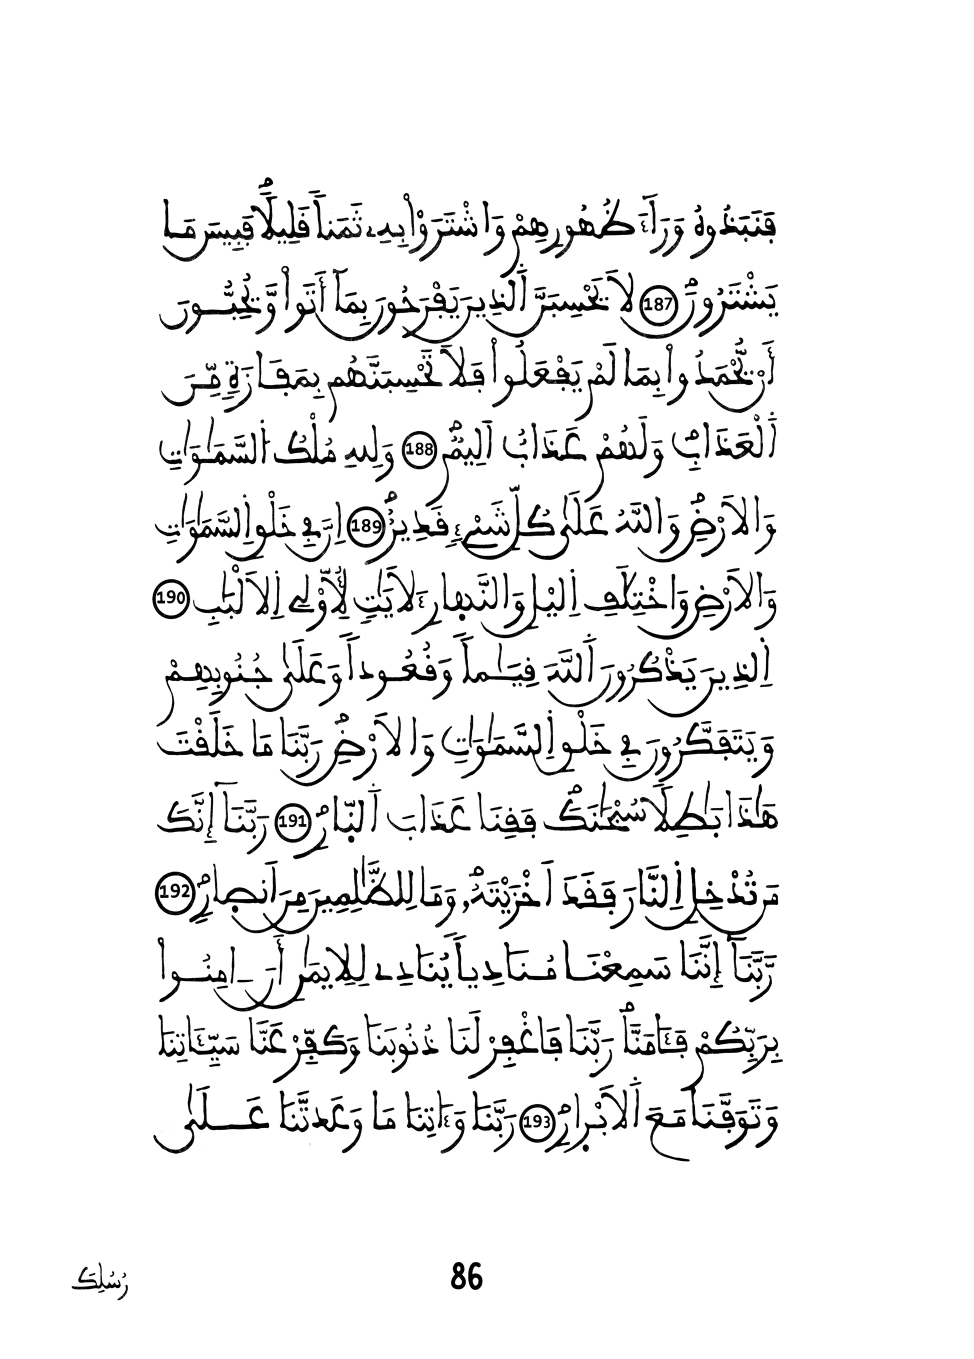 فَنَبَذُوهُ وَرَآءَ ظُهُورِهِمْ وَاشْتَرَوْا۟ بِهِۦ ثَمَناً قَلِيلاً فَبِيسَ مَا
يَشْتَرُونَ 187 لَا يَحْسِبَنَّ اَ۬لذِينَ يَفْرَحُونَ بِمَآ أَتَوا۟ وَّيُحِبُّونَ
أَنْ يُّحْمَدُوا۟ بِمَا لَمْ يَفْعَلُوا۟ فَلَا تَحْسِبَنَّهُم بِمَفَازَةٍ مِّنَ
اَ۬لْعَذَابِ وَلَهُمْ عَذَابٌ اَلِيمٌ 188 وَلِلهِ مُلْكُ اُ۬لسَّمَٰوَٰتِ
وَالَارْضِ وَاللَّهُ عَلَىٰ كُلِّ شَےْءٍ قَدِيرٌ 189 اِنَّ فِے خَلْقِ اِ۬لسَّمَٰوَٰتِ
وَالَارْضِ وَاخْتِلَٰفِ اِ۬ليْلِ وَالنَّهارِ ءَلَايَٰتٍ لِّأُوْلِے اِ۬لَالْبَٰبِ 190
اِ۬لذِينَ يَذْكُرُونَ اَ۬للَّهَ قِيَٰماً وَقُعُوداً وَعَلَىٰ جُنُوبِهِمْ
وَيَتَفَكَّرُونَ فِے خَلْقِ اِ۬لسَّمَٰوَٰتِ وَالَارْضِ رَبَّنَا مَا خَلَقْتَ
هَٰذَا بَٰطِلاً سُبْحَٰنَكَ فَقِنَا عَذَابَ اَ۬لنّ۪ارِ 191 رَبَّنَآ إِنَّكَ
مَن تُدْخِلِ اِ۬لنَّارَ فَقَدَ اَخْزَيْتَهُۥ وَمَا لِلظَّٰلِمِينَ مِنَ اَنص۪ارٍ 192
رَّبَّنَآ إِنَّنَا سَمِعْنَا مُنَادِياً يُنَادِے لِلِايمَٰنِ أَنَ ـ امِنُوا۟
بِرَبِّكُمْ فَـَٔامَنَّا رَبَّنَا فَاغْفِرْ لَنَا ذُنُوبَنَا وَكَفِّرْ عَنَّا سَيِّـَٔاتِنَا
وَتَوَفَّنَا مَعَ اَ۬لَابْر۪ارِ 193 رَبَّنَا وَءَاتِنَا مَا وَعَدتَّنَا عَلَىٰ
86
رُسُلِكَ